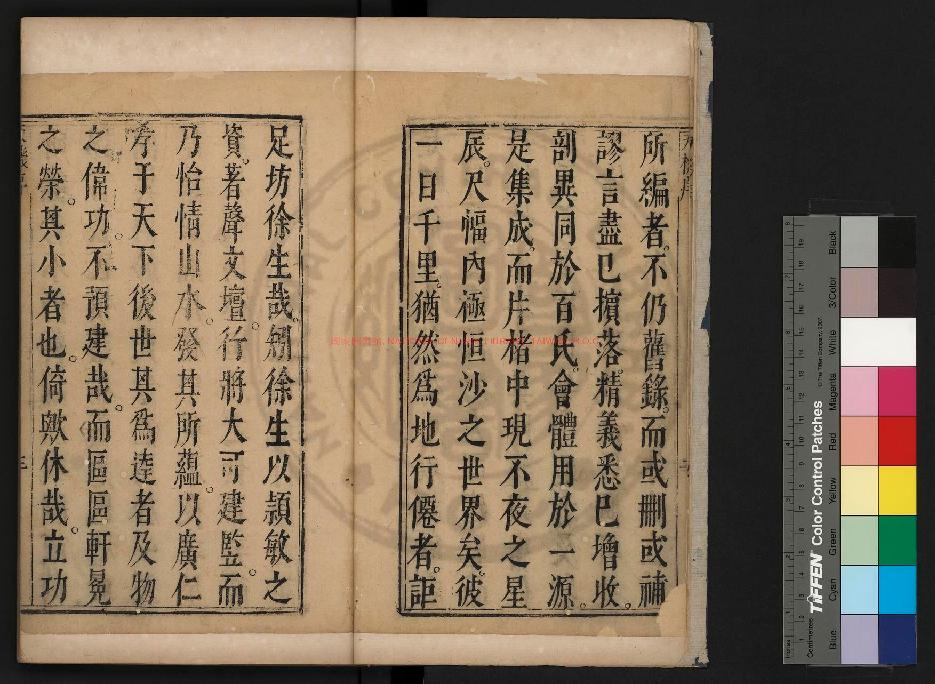 所編者。不仍舊錄。而或刪或補
謬言盡已擯落。精義悉已增收。
剖異同於百氏。會體用於一源。
是集成。而片楮中現不夜之星
辰。尺幅內極恒沙之世界矣。彼
一日千里。猶然為地行僊者。詎
足坊徐生哉。矧徐生以穎敏之
資。著聲文壇。行將大可建竪。而
乃怡情山水。發其所蘊。以廣仁
孝于天下後世其為逵者及物
之偉功。不預建哉。而區區軒冕
之榮。其小者也。倚歟休哉。立功
TIFFEN Color Control Patches
© The Tiffen Company, 2007
Centimetres
Inches
Blue
Cyan
Green
Yellow
Red
Magenta
White
3/Color
Black